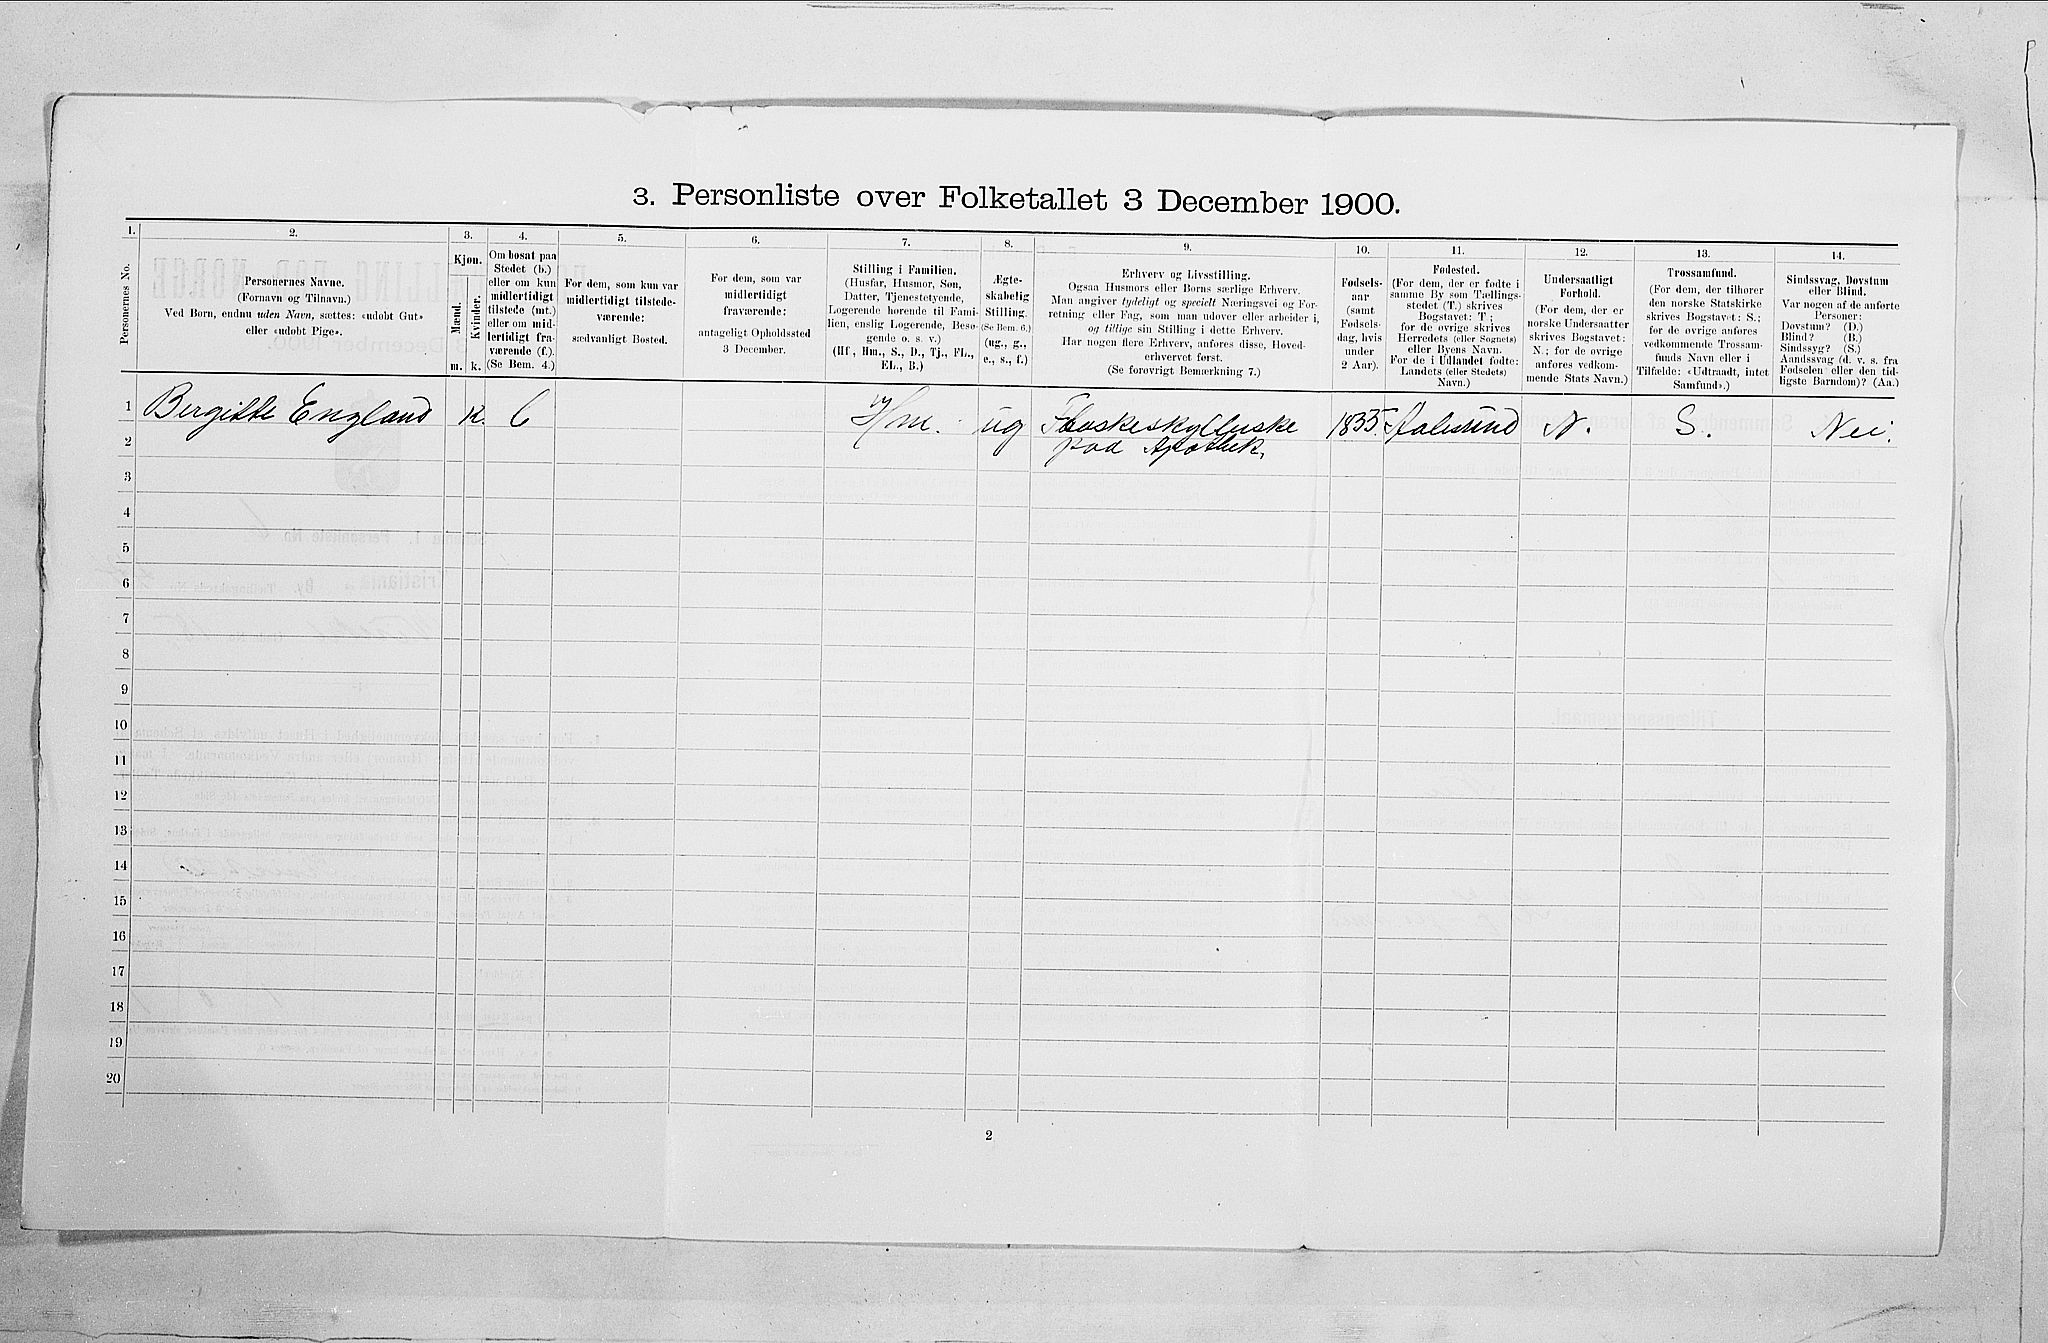 3. Personliste over Folketallet 3 December 1900.
1.
Personernes No.
2.
Personernes Navne.
(Fornavn og Tilnavn.)
Ved Børn, endnu uden Navn, sættes: «udøbt Gut»
eller «udøbt Pige».
3.
Kjøn.
Mænd.
Kvinder.
m. k.
4.
Om bosat paa
Stedet (b.)
eller om kun
midlertidigt
tilstede (mt.)
eller om mid-
lertidigt fra-
værende (f.).
(Se Bem. 4.)
5.
For dem, som kun var
midlertidigt tilstede-
værende:
sædvanligt Bosted.
6.
For dem, som var
midlertidigt
fraværende:
antageligt Opholdssted
3 December.
7.
Stilling i Familien.
(Husfar, Husmor, Søn,
Datter, Tjenestetyende,
Logerende hørende til Fami-
lien, enslig Logerende, Besø-
gende o. s. v.)
(Hf., Hm., S., D., Tj., FL.,
EL., B.)
8.
Ægte-
skabelig
Stilling.
(Se Bem. 6.)
(ug., g.,
e., s., f.)
9.
Erhverv og Livsstilling.
Ogsaa Husmors eller Børns særlige Erhverv.
Man angiver tydeligt og specielt Næringsvei og For-
retning eller Fag, som man udøver eller arbeider i,
og tillige sin Stilling i dette Erhverv.
Har nogen flere Erhverv, anføres disse, Hoved-
erhvervet først.
(Se forøvrigt Bemærkning 7.)
10.
Fødsels-
aar
(samt
Fødsels-
dag, hvis
under
2 Aar).
11.
Fødested.
(For dem, der er fødte i
samme By som Tællings-
stedet (T.) skrives
Bogstavet: T;
for de øvrige skrives
Herredets (eller Sognets)
eller Byens Navn.
For de i Udlandet fødte:
Landets (eller Stedets)
Navn.)
12.
Undersaatligt
Forhold.
(For dem, der er
norske Undersaatter
skrives Bogstavet:
N.; for de øvrige
anføres vedkom-
mende Stats Navn.)
13.
Trossamfund.
(For dem, der tilhører
den norske Statskirke
skrives Bogstavet: S.;
for de øvrige anføres
vedkommende Trossam-
funds Navn eller i
Tilfælde: «Udtraadt, intet
Samfund».)
14.
Sindssvag, Døvstum
eller Blind.
Var nogen af de anførte
Personer:
Døvstum? (D.)
Blind? (B.)
Sindssyg? (S.)
Aandssvag (d. v. s. fra
Fødselen eller den tid-
ligste Barndom)? (Aa.)
1 Bergitte England k. Hm. ug 1835 Aalesund N. S. Nei.
2 paa Apothek.
3
4
5
6
7
8
9
10
11
12
13
14
15
16
17
18
19
20
2